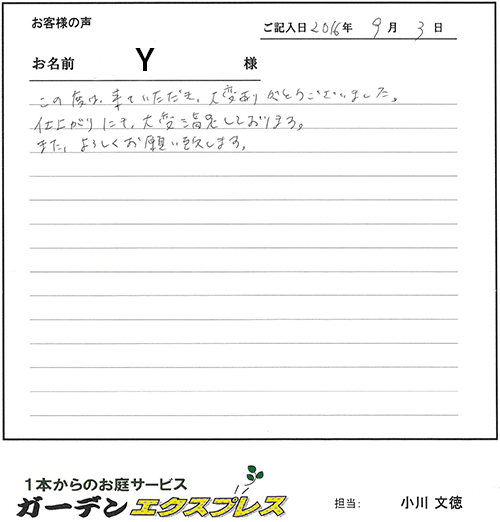 お客様の声
ご記入日 2016年 9月 3日
お名前 Y 様
この度は、来ていただき、大変ありがとうございました。
仕上がりにも、大変満足しております。
また、よろしくお願い致します。
1本からのお庭サービス
ガーデンエクスプレス
担当: 小川 文徳